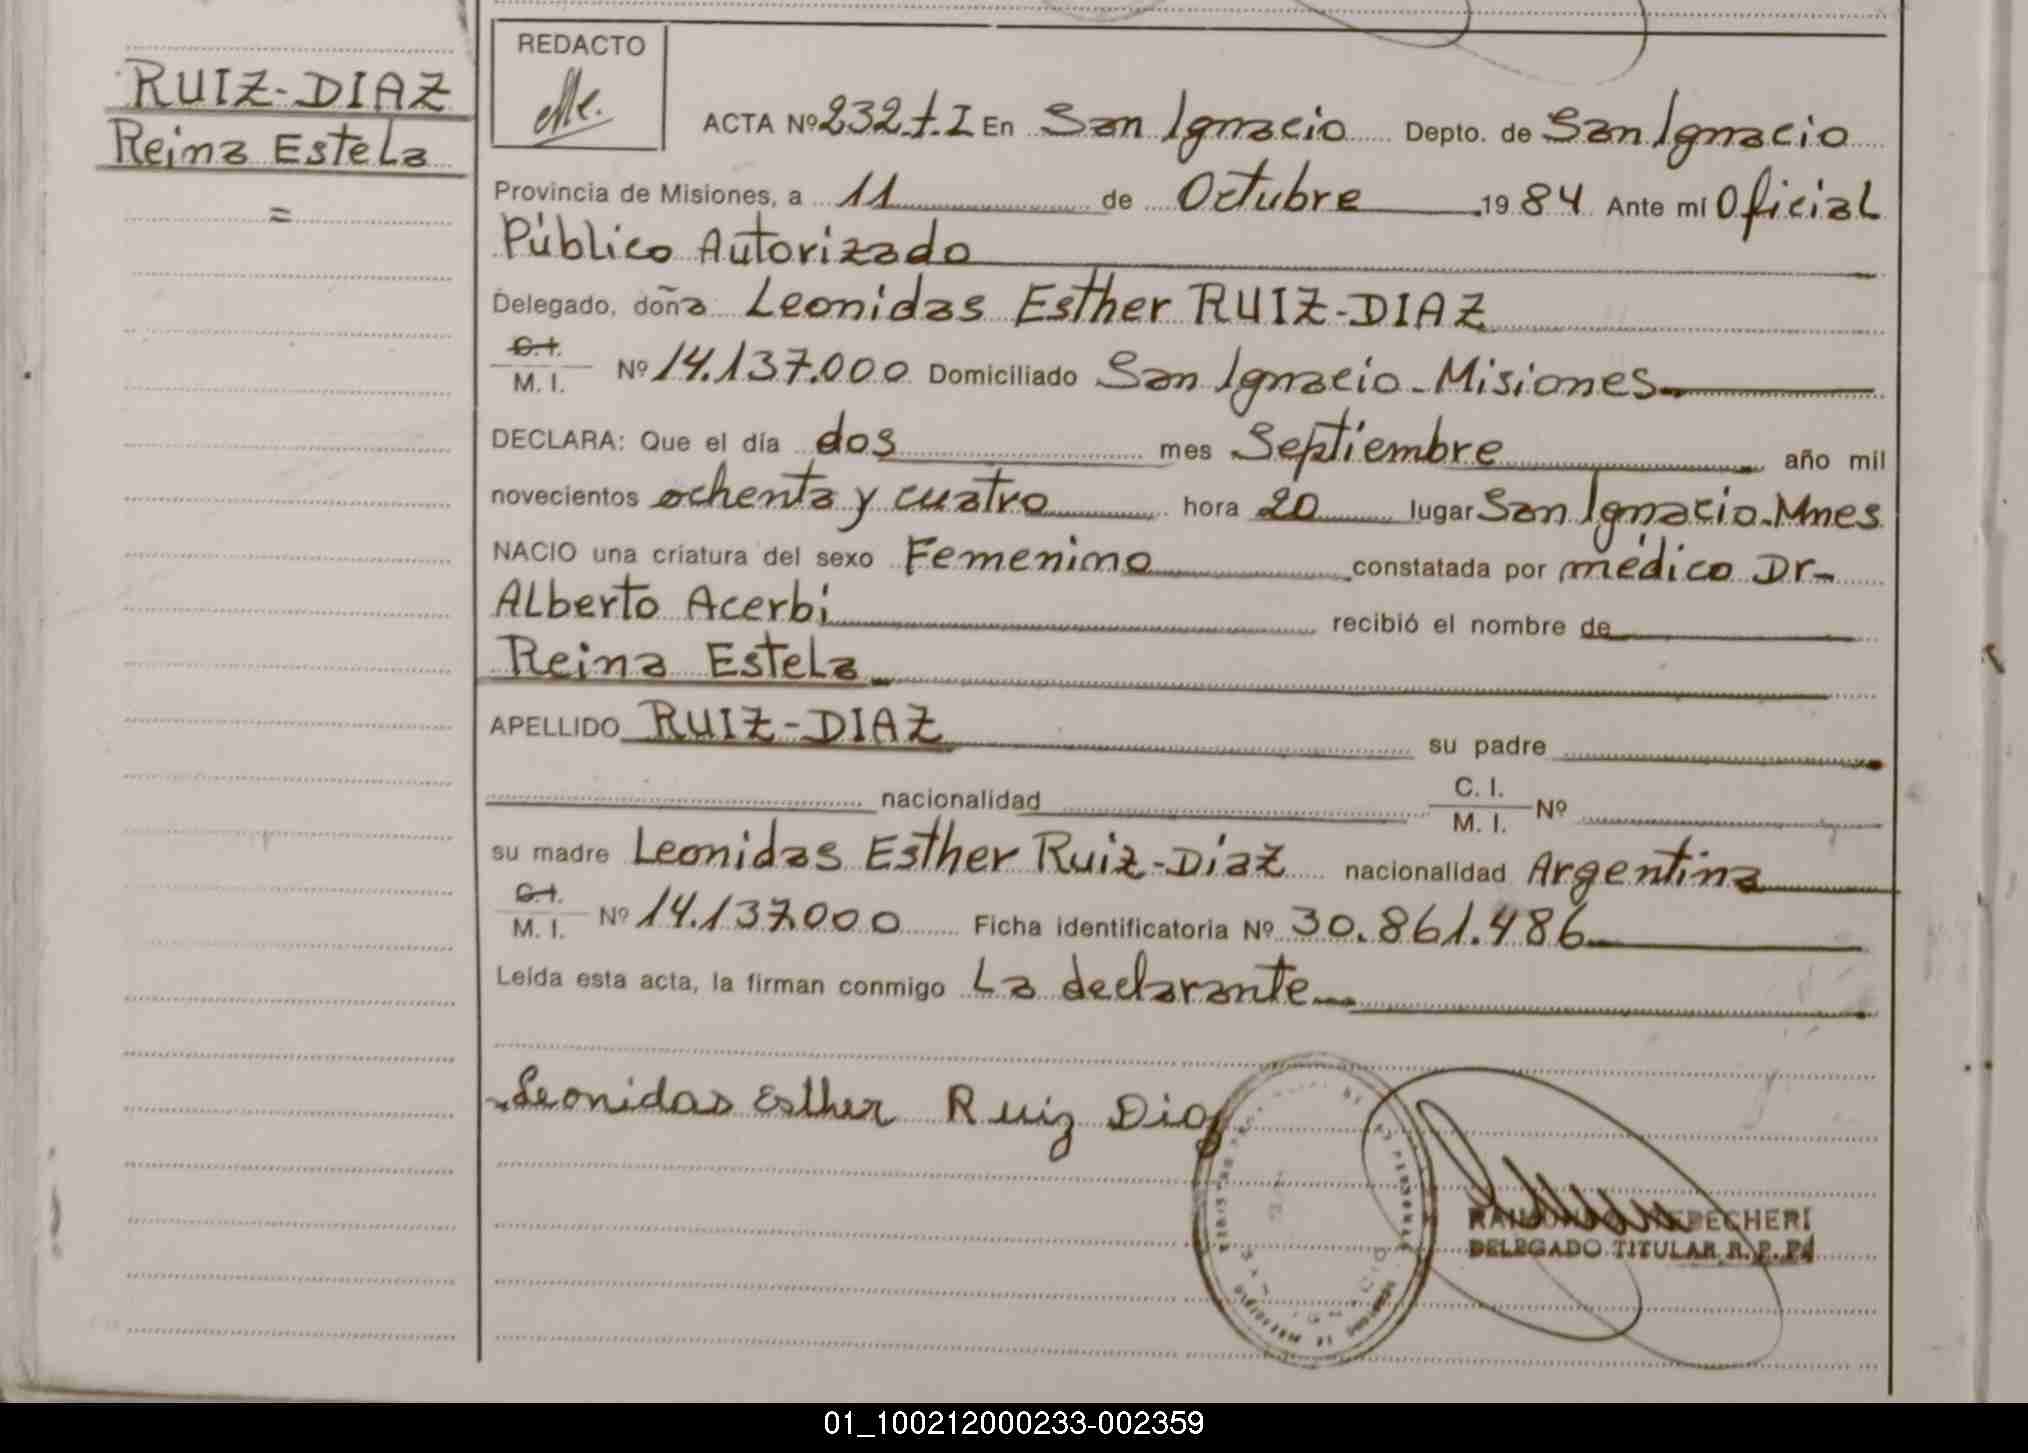 RUIZ-DIAZ
Reina Estela
=
REDACTO
ACTA Nº 232 t. I En San Ignacio Depto. de San Ignacio
Provincia de Misiones, a 11 de Octubre 1984 Ante mí Oficial
Público Autorizado
Delegado, doña Leonidas Esther RUIZ-DIAZ
C.I.
M. I. Nº 14.137.000 Domiciliado San Ignacio - Misiones
DECLARA: Que el día dos mes Septiembre año mil
novecientos ochenta y cuatro hora 20 lugar San Ignacio. Mnes
NACIO una criatura del sexo Femenino constatada por médico Dr-
Alberto Acerbi recibió el nombre de
Reina Estela
APELLIDO RUIZ-DIAZ su padre
nacionalidad C. I.
M. I. Nº
su madre Leonidas Esther Ruiz-Diaz nacionalidad Argentina
C.I.
M. I. Nº 14.137.000 Ficha identificatoria Nº 30.861.486
Leída esta acta, la firman conmigo La declarante
Leonidas Esther Ruiz Diaz
DELEGADO TITULAR R. P. P.
01_100212000233-002359